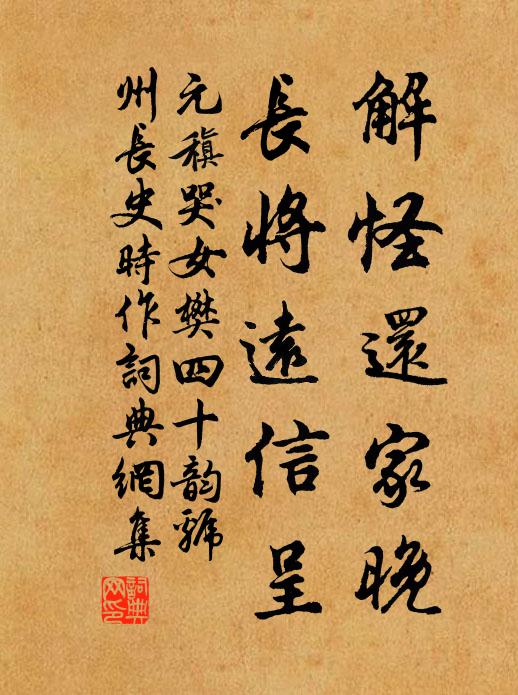 解怪還家晚
長將遠信呈
元稹哭女樊四十韵虢
州長史時作詞典網集
詞典網印